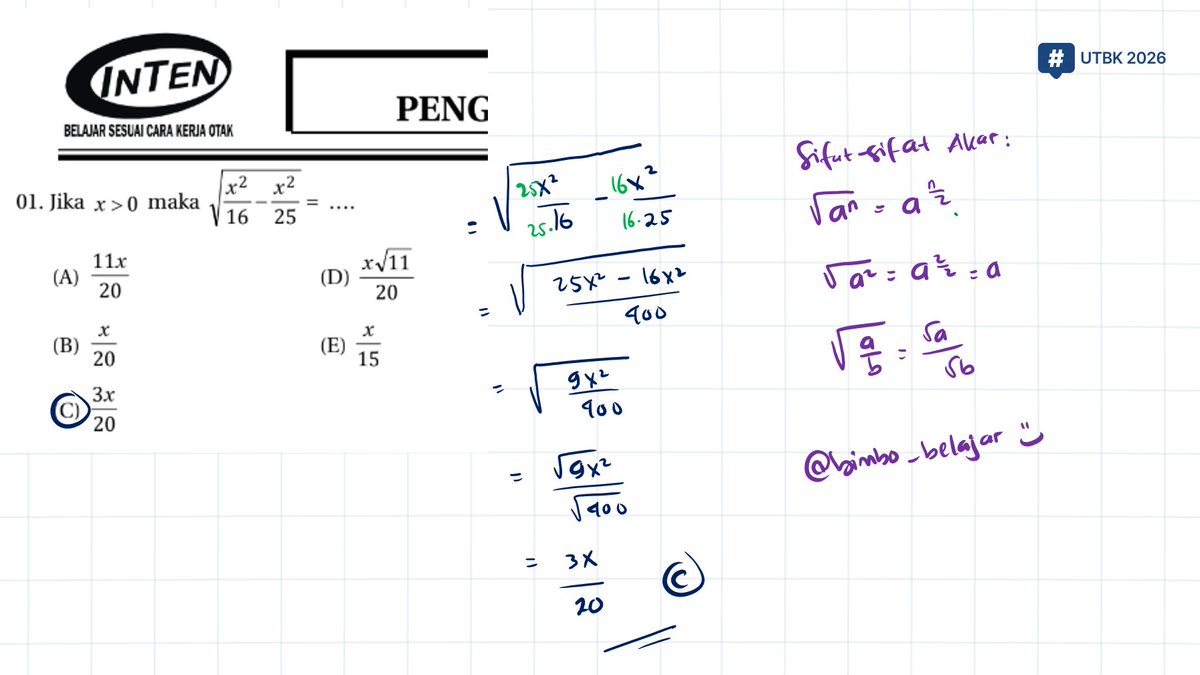 INTEN
BELAJAR SESUAI CARA KERJA OTAK
PENG
# UTBK 2026
01. Jika x > 0 maka √(x²/16 − x²/25) = ....
(A) 11x/20
(B) x/20
(C) 3x/20
(D) x√11/20
(E) x/15
= √(25x²/25.16 − 16x²/16.25)
= √((25x² − 16x²)/400)
= √(9x²/400)
= √9x²/√400
= 3x/20 C
Sifat-sifat Akar:
√aⁿ = a^(n/2).
√a² = a^(2/2) = a
√(a/b) = √a/√b
@bimbo_belajar